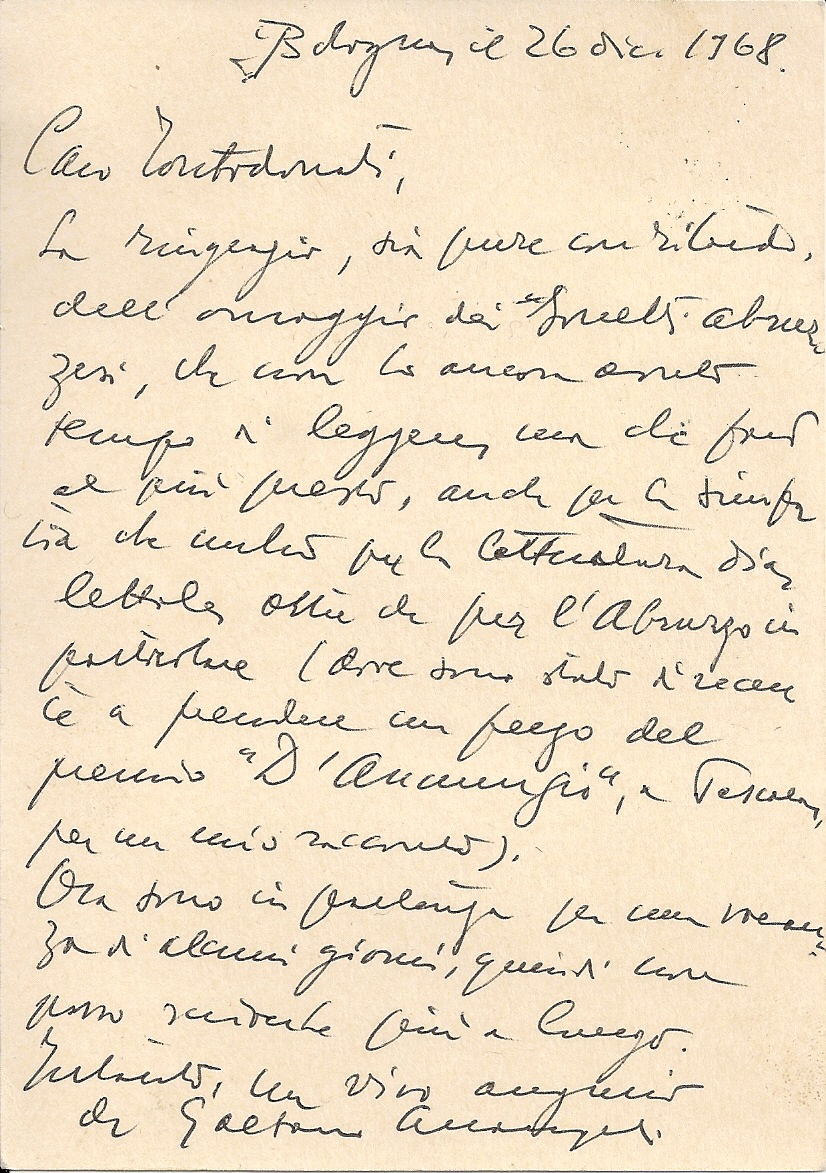 Bologna, il 26 dic. 1968.
Caro Tontodonati,
La ringrazio, sia pure con ritardo,
dell'omaggio dei "Sonetti abruz
zesi, che non ho ancora avuto
tempo di leggere, ma che farò
al più presto, anche per la simpa
tia che nutro per la letteratura dia
lettale, oltre che per l'Abruzzo in
particolare (dove sono stato di recen
te a prendere un pezzo del
premio "D'Annunzio", a Pescara,
per un mio racconto).
Ora sono in partenza per una vacan
za di alcuni giorni, quindi non
posso scriverle più a lungo.
Intanto, un vivo augurio
da Gaetano Arcangeli